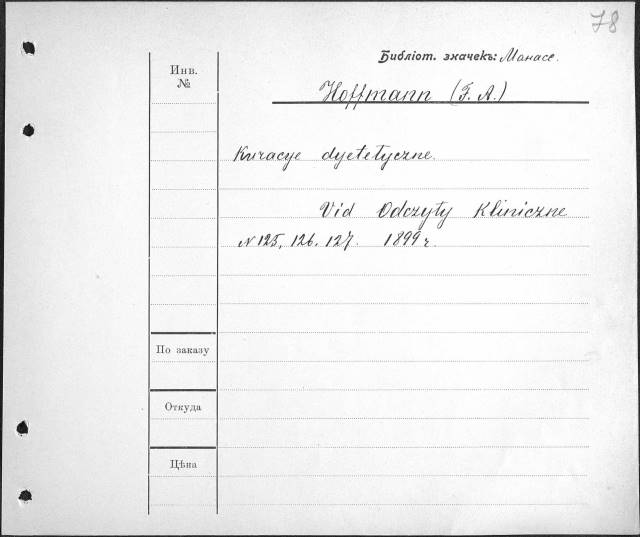 78
Библіот. значекъ: Манасе.
Инв.
№
Hoffmann (F. A.)
Kuracye dyetetyczne.
Vid Odczyty Kliniczne
N 125, 126, 127. 1899 r.
По заказу
Откуда
Цѣна